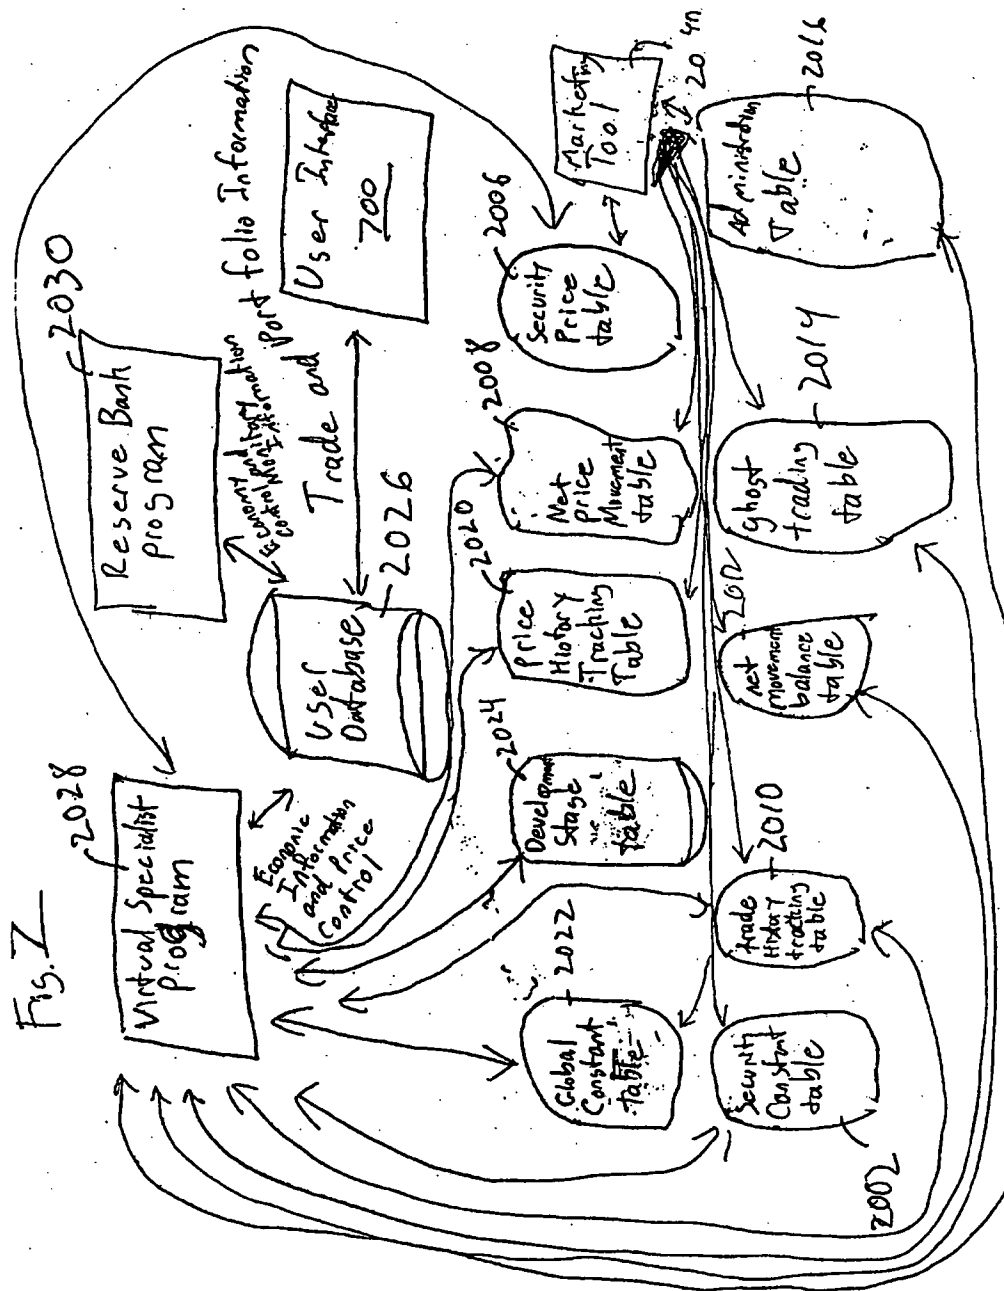 Fig. 7
Virtual Specialist
program
2028
Reserve Bank
program
2030
Economy
control
Monitary
Information
Economic
Information
and Price
Control
User
Database
2026
Trade and Portfolio Information
User Interface
700
Global
Constant
table
2022
Development
Stage
table
2024
Price
History
Tracking
Table
2020
Net
Price
Movement
table
2008
Security
Price
table
2006
Marketing
Tool
Security
Constant
table
2002
trade
History
tracking
table
2010
net
movement
balance
table
2012
ghost
trading
table
2014
Administration
Table
2016